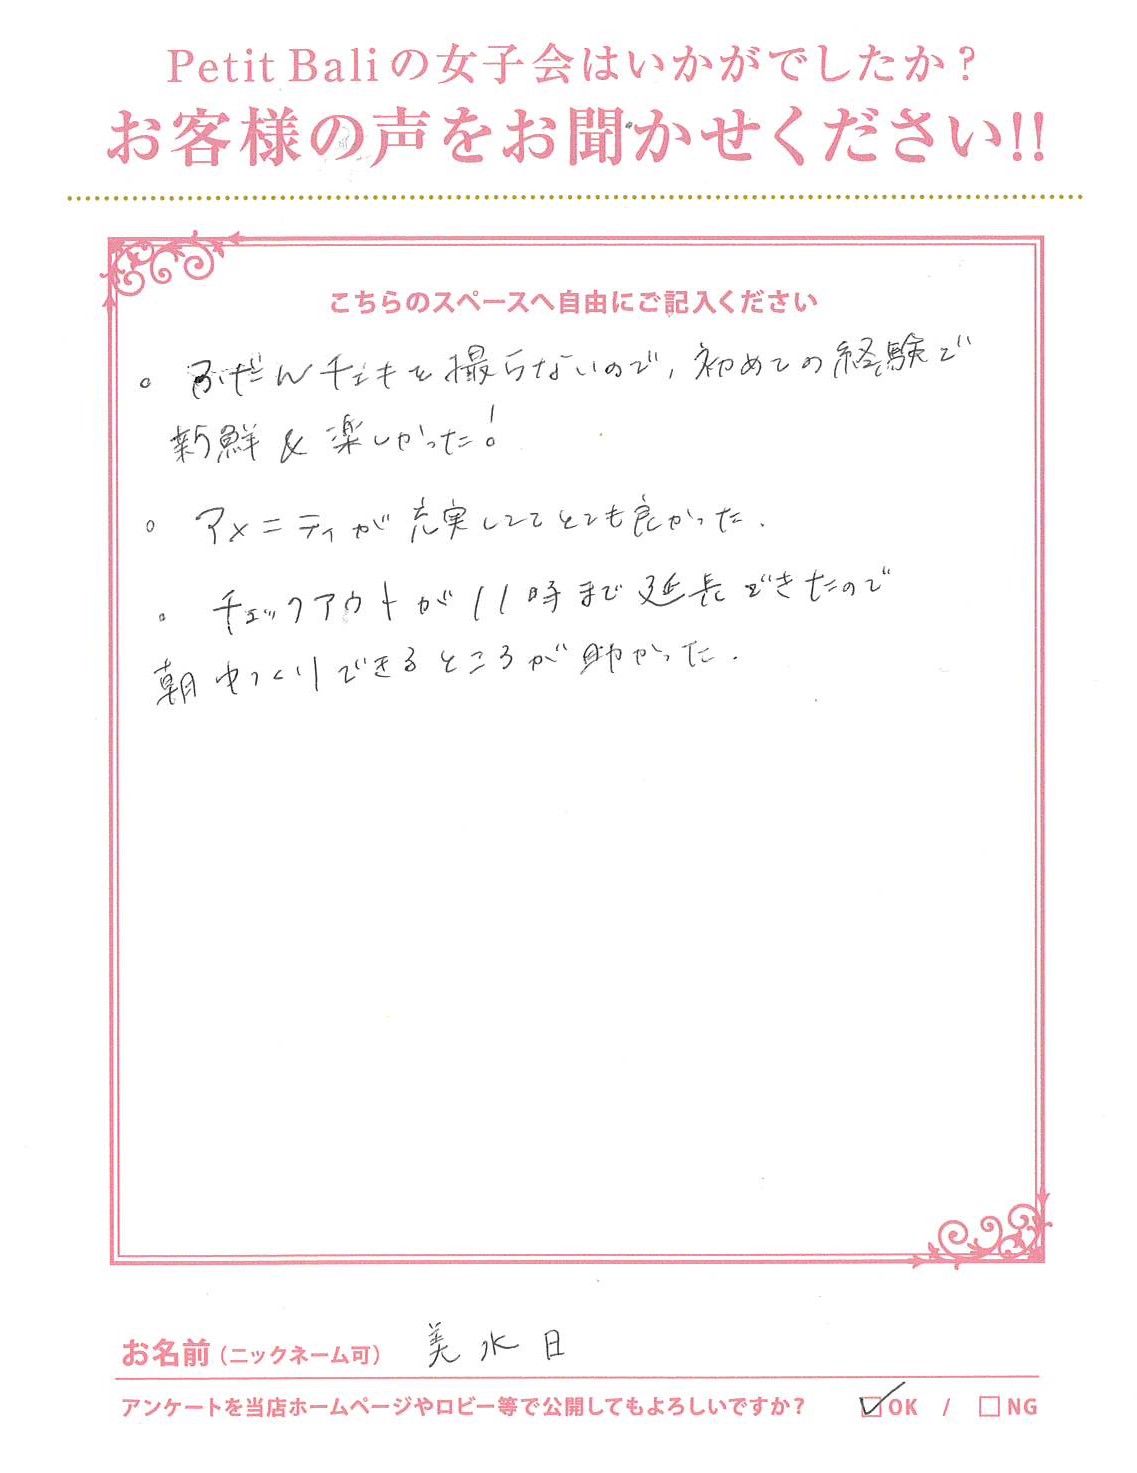 Petit Baliの女子会はいかがでしたか?
お客様の声をお聞かせください!!
こちらのスペースへ自由にご記入ください
。ふだんチェキを撮らないので、初めての経験で
新鮮&楽しかった!
。アメニティが充実しててとても良かった.
。チェックアウトが11時まで延長できたので
朝ゆっくりできるところが助かった.
お名前(ニックネーム可) 美水日
アンケートを当店ホームページやロビー等で公開してもよろしいですか? ☑OK / □NG